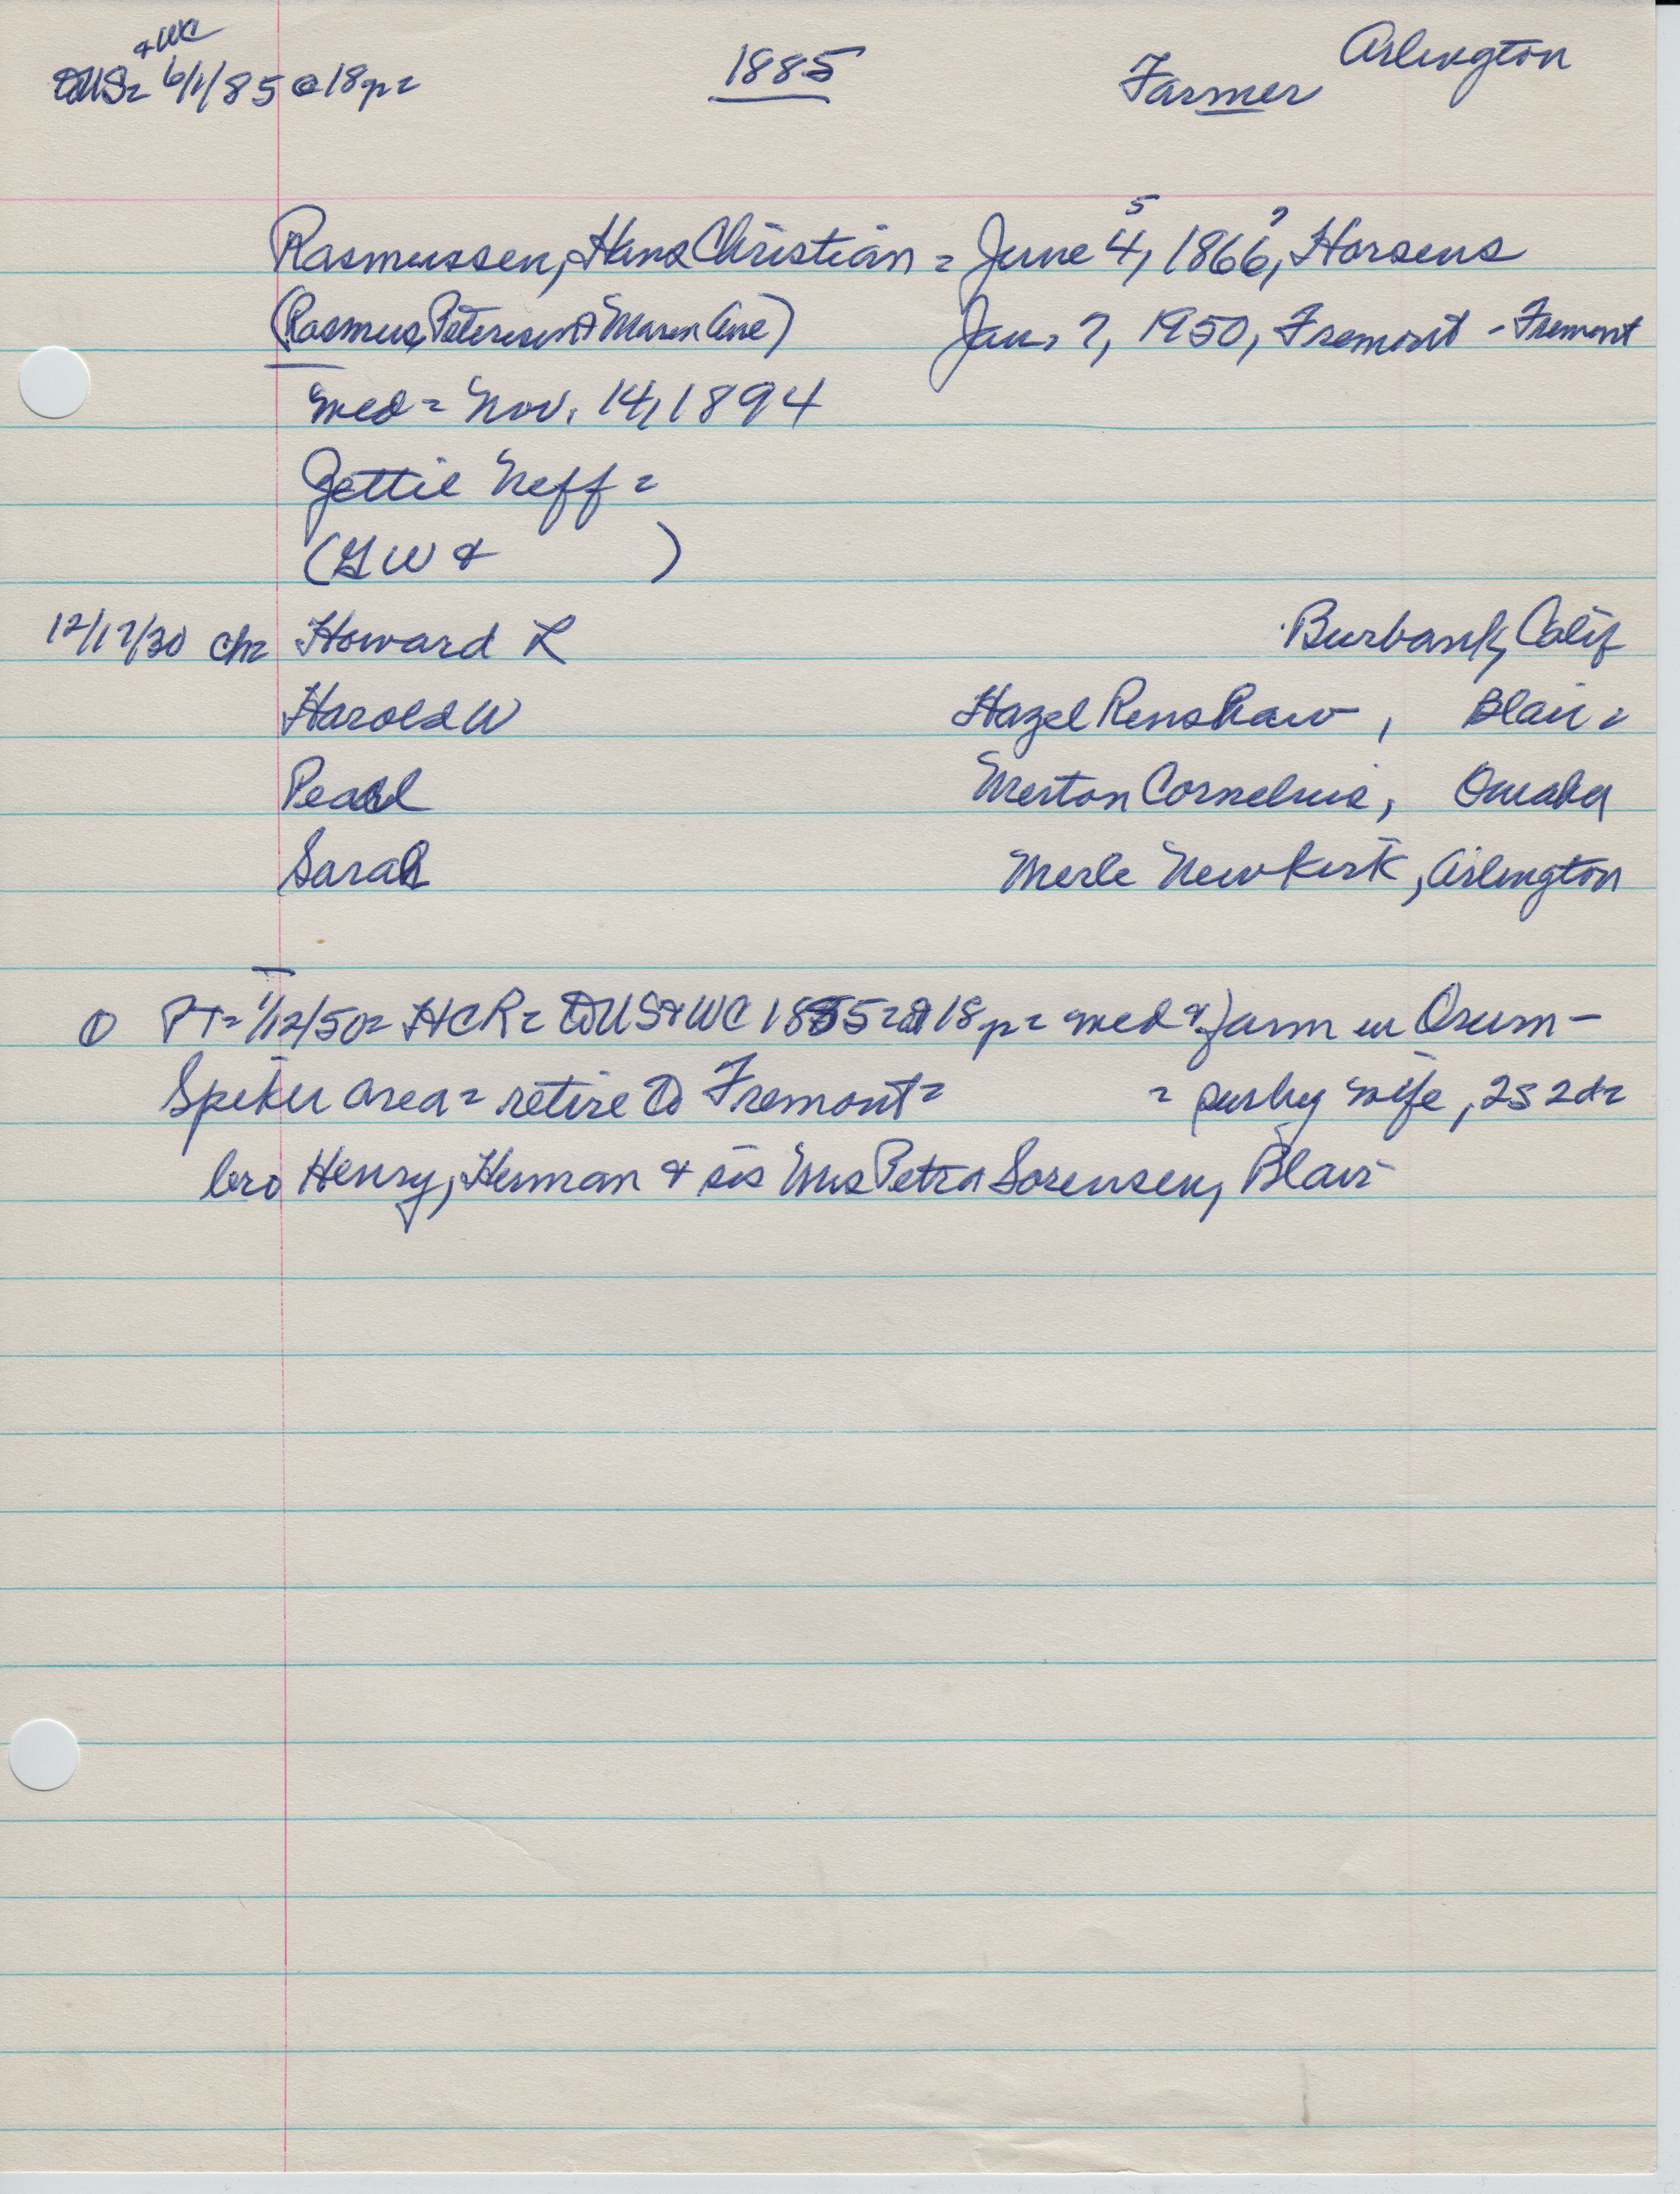 & WC
toUS= 6/1/85 @ 18 p= 1885 Farmer Arlington
5 ?
Rasmussen, Hans Christian = June 4, 1866, Horsens
(Rasmus Petersen & Maren Ane) Jan. ?, 1950, Fremont - Fremont
med = Nov. 14, 1894
Jettie Neff =
(GW & )
12/17/30 ch= Howard L Burbank, Calif
Harold W Hazel Renshaw, Blair =
Pearl Merton Cornelius, Omaha
Sarah Merle Newkirk, Arlington
① PT= 1/12/50= HCR= toUS & WC 1885= @ 18 p= med & farm in Orum -
Spiker area= retire to Fremont= = surby wife, 2s 2d=
bro Henry, Herman & sis Mrs Petra Sorensen, Blair